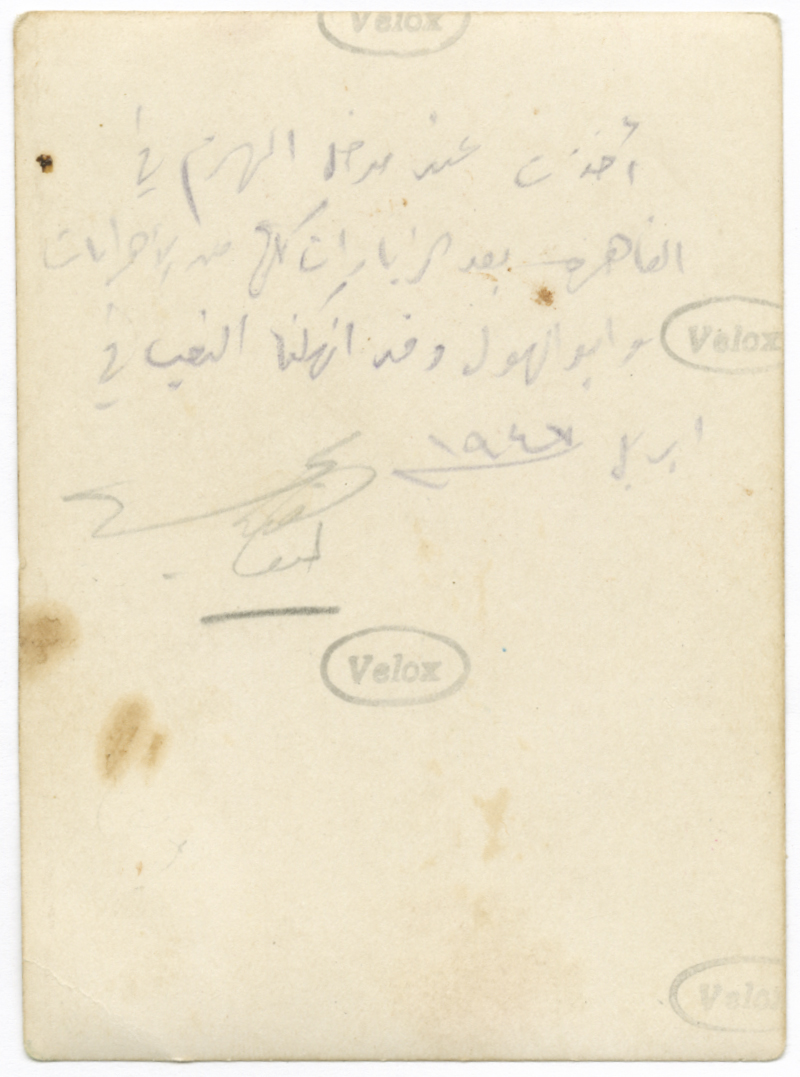 Velox
أخذت عند مدخل الهرم في
القاهرة بعد زيارات كل من الاهرامات
وابو الهول وقد انهكنا التعب في
Velox
ابريل
Velox
Velox